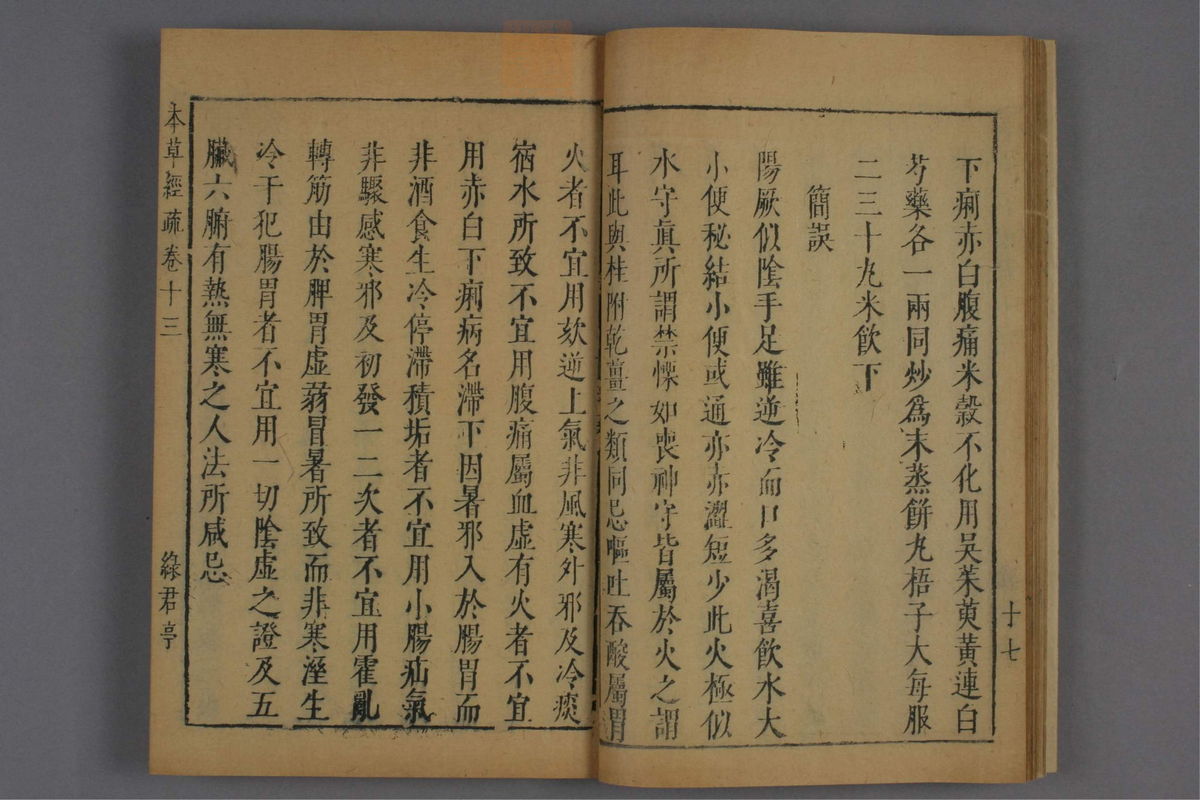 下痢赤白腹痛米榖不化用吳茱萸黃連白
芍藥各一兩同炒爲末蒸餅丸梧子大每服
二三十丸米飲下
簡誤
陽厥似陰手足雖逆冷而口多渴喜飲水大
小便秘結小便或通亦赤澀短少此火極似
水守眞所謂禁慄如喪神守皆屬於火之謂
耳此與桂附乾薑之類同忌嘔吐吞酸屬胃
火者不宜用欬逆上氣非風寒外邪及冷痰
宿水所致不宜用腹痛屬血虛有火者不宜
用赤白下痢病名滯下因暑邪入於腸胃而
非酒食生冷停滯積垢者不宜用小腸疝氣
非驟感寒邪及初發一二次者不宜用霍亂
轉筋由於脾胃虛弱冒暑所致而非寒溼生
冷干犯腸胃者不宜用一切陰虛之證及五
臟六腑有熱無寒之人法所咸忌
十七
本草經疏卷十三
綠君亭